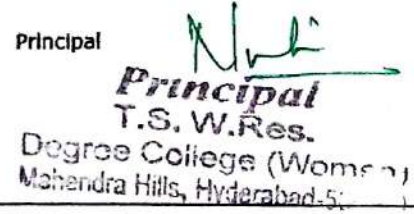 Principal
Principal
T.S. W.Res.
Degree College (Women)
Mahendra Hills, Hyderabad-5